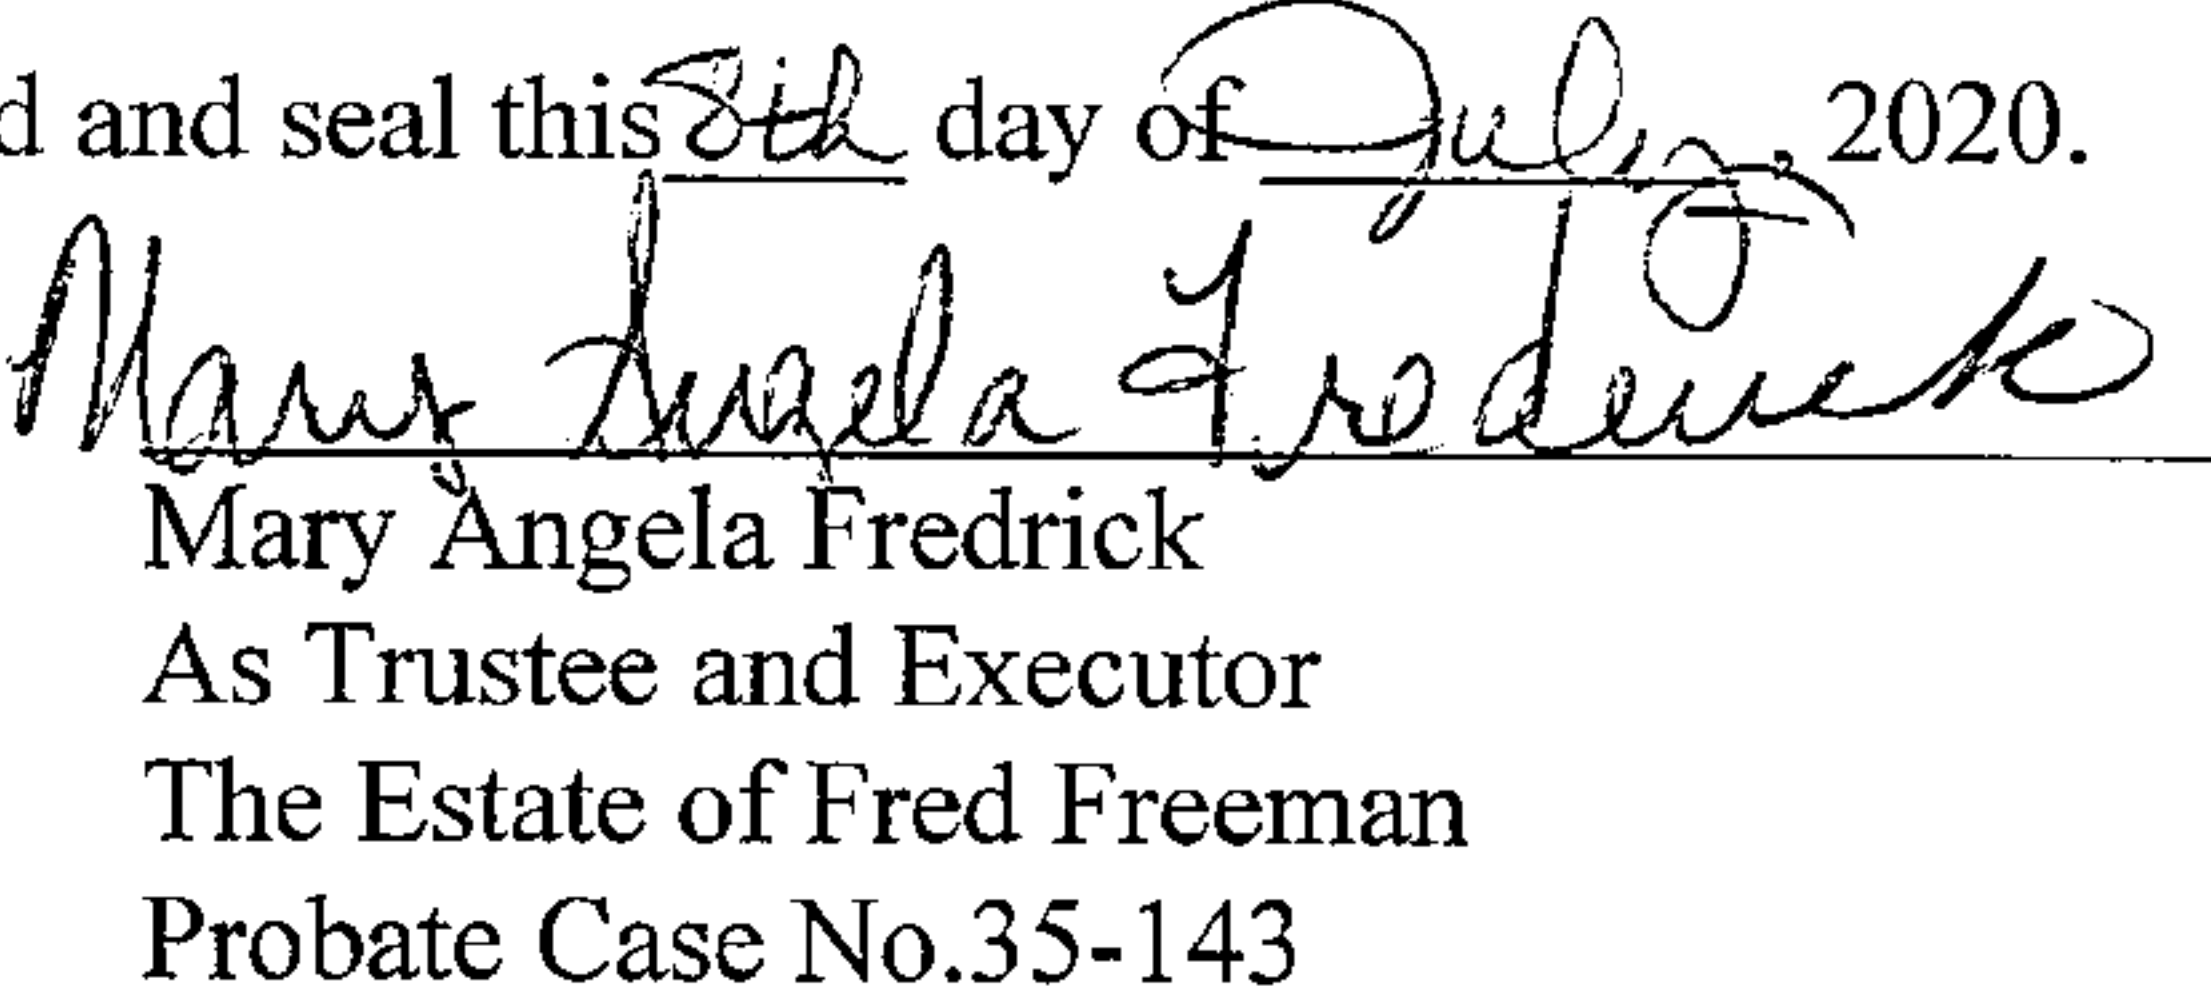 d and seal this 8th day of July, 2020.
Mary Angela Frederick
Mary Angela Fredrick
As Trustee and Executor
The Estate of Fred Freeman
Probate Case No.35-143